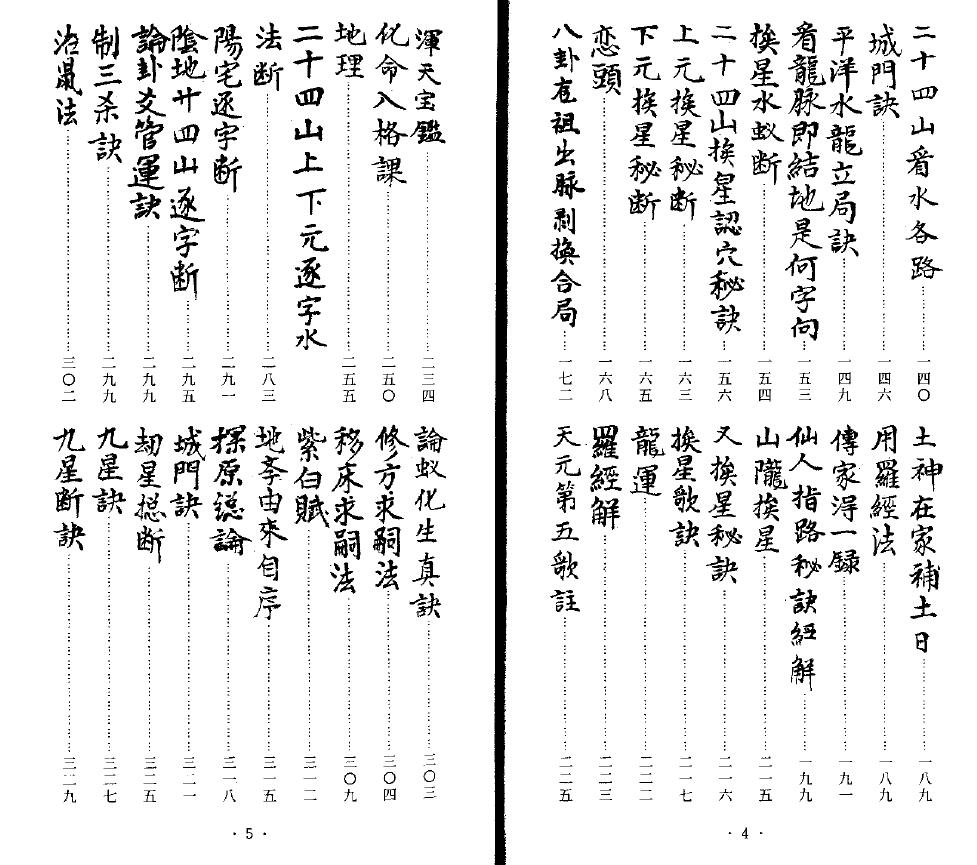 二十四山看水各路……一四〇
城門訣……一四六
平洋水龍立局訣……一四九
看龍脉即結地是何字向……一五三
挨星水蚁断……一五四
二十四山挨星認穴秘訣……一五六
上元挨星秘断……一六三
下元挨星秘断……一六五
恋頭……一六八
八卦卮祖出脉剥換合局……一七二
土神在家補土日……一八九
用羅經法……一八九
傳家淂一錄……一九一
仙人指路秘訣經解……一九九
山隴挨星……二一五
又挨星秘訣……二一六
挨星歌訣……二一七
龍運……二二二
羅經解……二二三
天元第五歌註……二二五
·4·
渾天宝鑑……二三四
化命入格課……二五〇
地理……二五五
二十四山上下元逐字水
法断……二八三
陽宅逐字断……二九一
陰地廿四山逐字断……二九五
論卦爻管運訣……二九九
制三杀訣……二九九
治鼠法……三〇二
論蚁化生真訣……三〇三
修方求嗣法……三〇四
移床求嗣法……三〇九
紫白賦……三一二
地李由來自序……三一五
探原總論……三一八
城門訣……三二一
劫星捴断……三二五
九星訣……三二七
九星断訣……三二九
·5·